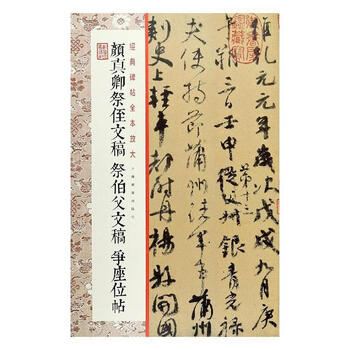 維乾元元年歲次戊戌九月庚
第十三
午朔三日壬申從父銀青光祿
夫使持節蒲州諸軍事蒲州
刺史上輕車都尉丹楊縣開國
經典碑帖全本放大
顏真卿祭侄文稿 祭伯父文稿 爭座位帖